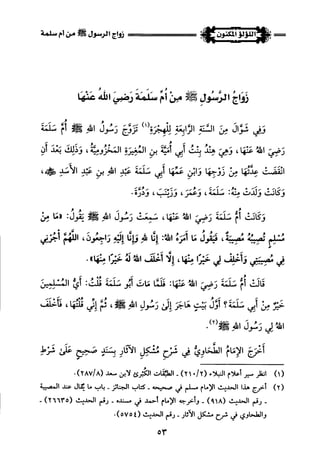 اللؤلؤ المكنون
زواج الرسول ﷺ من أم سلمة
زَوَاجُ الرَّسُولِ ﷺ مِنْ أُمِّ سَلَمَةَ رَضِيَ اللهُ عَنْهَا
وَفِي شَوَّالَ مِنَ السَّنَةِ الرَّابِعَةِ لِلْهِجْرَةِ(١) تَزَوَّجَ رَسُولُ اللهِ ﷺ أُمَّ سَلَمَةَ
رَضِيَ اللهُ عَنْهَا، وَهِيَ هِنْدُ بِنْتُ أَبِي أُمَيَّةَ بنِ المُغِيرَةِ المَخْزُومِيَّةُ، وَذَلِكَ بَعْدَ أَنِ
انْقَضَتْ عِدَّتُهَا مِنْ زَوْجِهَا وَابْنِ عَمِّهَا أَبِي سَلَمَةَ عَبْدِ اللهِ بنِ عَبْدِ الأَسَدِ ﷺ،
وَكَانَتْ وَلَدَتْ مِنْهُ: سَلَمَةَ، وَعُمَرَ، وَزَيْنَبَ، وَدُرَّةَ.
وَكَانَتْ أُمُّ سَلَمَةَ رَضِيَ اللهُ عَنْهَا، سَمِعَتْ رَسُولَ اللهِ ﷺ يَقُولُ: «مَا مِنْ
مُسْلِمٍ تُصِيبُهُ مُصِيبَةٌ، فَيَقُولُ مَا أَمَرَهُ اللهُ: إِنَّا لِلَّهِ وَإِنَّا إِلَيْهِ رَاجِعُونَ، اللَّهُمَّ أْجُرْنِي
فِي مُصِيبَتِي وَأَخْلِفْ لِي خَيْرًا مِنْهَا، إِلَّا أَخْلَفَ اللهُ لَهُ خَيْرًا مِنْهَا».
قَالَتْ أُمُّ سَلَمَةَ رَضِيَ اللهُ عَنْهَا: فَلَمَّا مَاتَ أَبُو سَلَمَةَ قُلْتُ: أَيُّ المُسْلِمِينَ
خَيْرٌ مِنْ أَبِي سَلَمَةَ؟ أَوَّلُ بَيْتٍ هَاجَرَ إِلَى رَسُولِ اللهِ ﷺ، ثُمَّ إِنِّي قُلْتُهَا، فَأَخْلَفَ
اللهُ لِي رَسُولَ اللهِ ﷺ(٢).
أَخْرَجَ الإِمَامُ الطَّحَاوِيُّ فِي شَرْحِ مُشْكِلِ الآثَارِ بِسَنَدٍ صَحِيحٍ عَلَى شَرْطِ
(١) انظر سير أعلام النبلاء (٢١٠/٢) - الطَّبَقَات الكُبْرى لابن سعد (٢٨٧/٨).
(٢) أخرج هذا الحديث الإمام مسلم في صحيحه - كتاب الجنائز - باب ما يقال عند المصيبة
- رقم الحديث (٩١٨) - وأخرجه الإمام أحمد في مسنده - رقم الحديث (٢٦٦٣٥) -
والطحاوي في شرح مشكل الآثار - رقم الحديث (٥٧٥٤).
٥٣